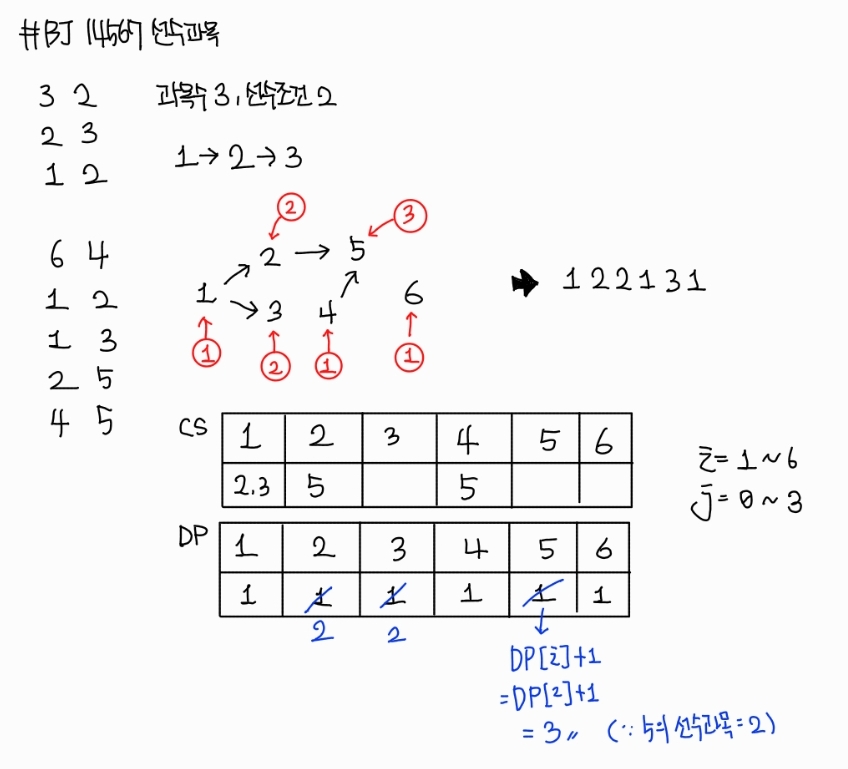 #BJ 14567 선수과목
3 2 과목수 3, 선수조건 2
2 3
1 2
1→2→3
6 4
1 2
1 3
2 5
4 5
② ③
2 → 5
1
3 4 6
① ② ① ①
➡ 1 2 2 1 3 1
CS 1 2 3 4 5 6
2.3 5 5
i = 1 ~ 6
j = 0 ~ 3
DP 1 2 3 4 5 6
1 1 1 1 1 1
2 2
DP[i]+1
=DP[2]+1
= 3〃 (∵ 5의 선수과목=2)